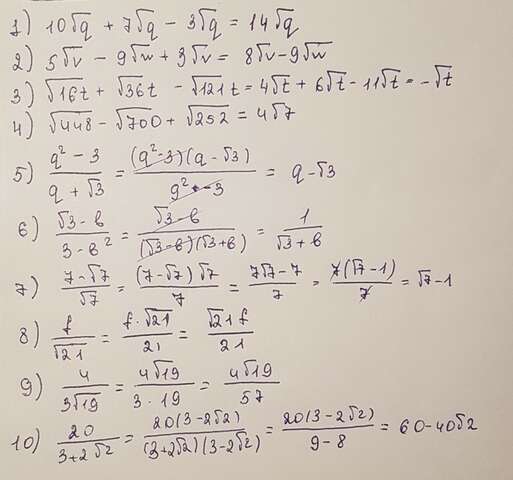 1) 10√q + 7√q − 3√q = 14√q
2) 5√v − 9√w + 3√v = 8√v − 9√w
3) √16t + √36t − √121t = 4√t + 6√t − 11√t = −√t
4) √448 − √700 + √252 = 4√7
5) (q² − 3)/(q + √3) = ((q² − 3)(q − √3))/(q² − 3) = q − √3
6) (√3 − b)/(3 − b²) = (√3 − b)/((√3 − b)(√3 + b)) = 1/(√3 + b)
7) (7 − √7)/√7 = ((7 − √7)√7)/7 = (7√7 − 7)/7 = (7(√7 − 1))/7 = √7 − 1
8) f/√21 = (f · √21)/21 = (√21 f)/21
9) 4/(3√19) = (4√19)/(3 · 19) = (4√19)/57
10) 20/(3 + 2√2) = (20(3 − 2√2))/((3 + 2√2)(3 − 2√2)) = (20(3 − 2√2))/(9 − 8) = 60 − 40√2